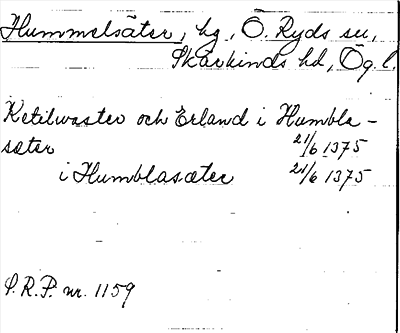 Hummelsäter, hg., Ö. Ryds sn,
Skärkinds hd, Ög. l.
Ketilwaster och Erland i Humbla-
sæter 21/6 1375
i Humblasæter 21/6 1375
S.R.P. nr. 1159